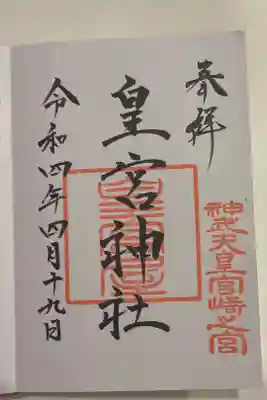 奉拝
神武天皇宮崎之宮
皇宮神社
令和四年四月十九日